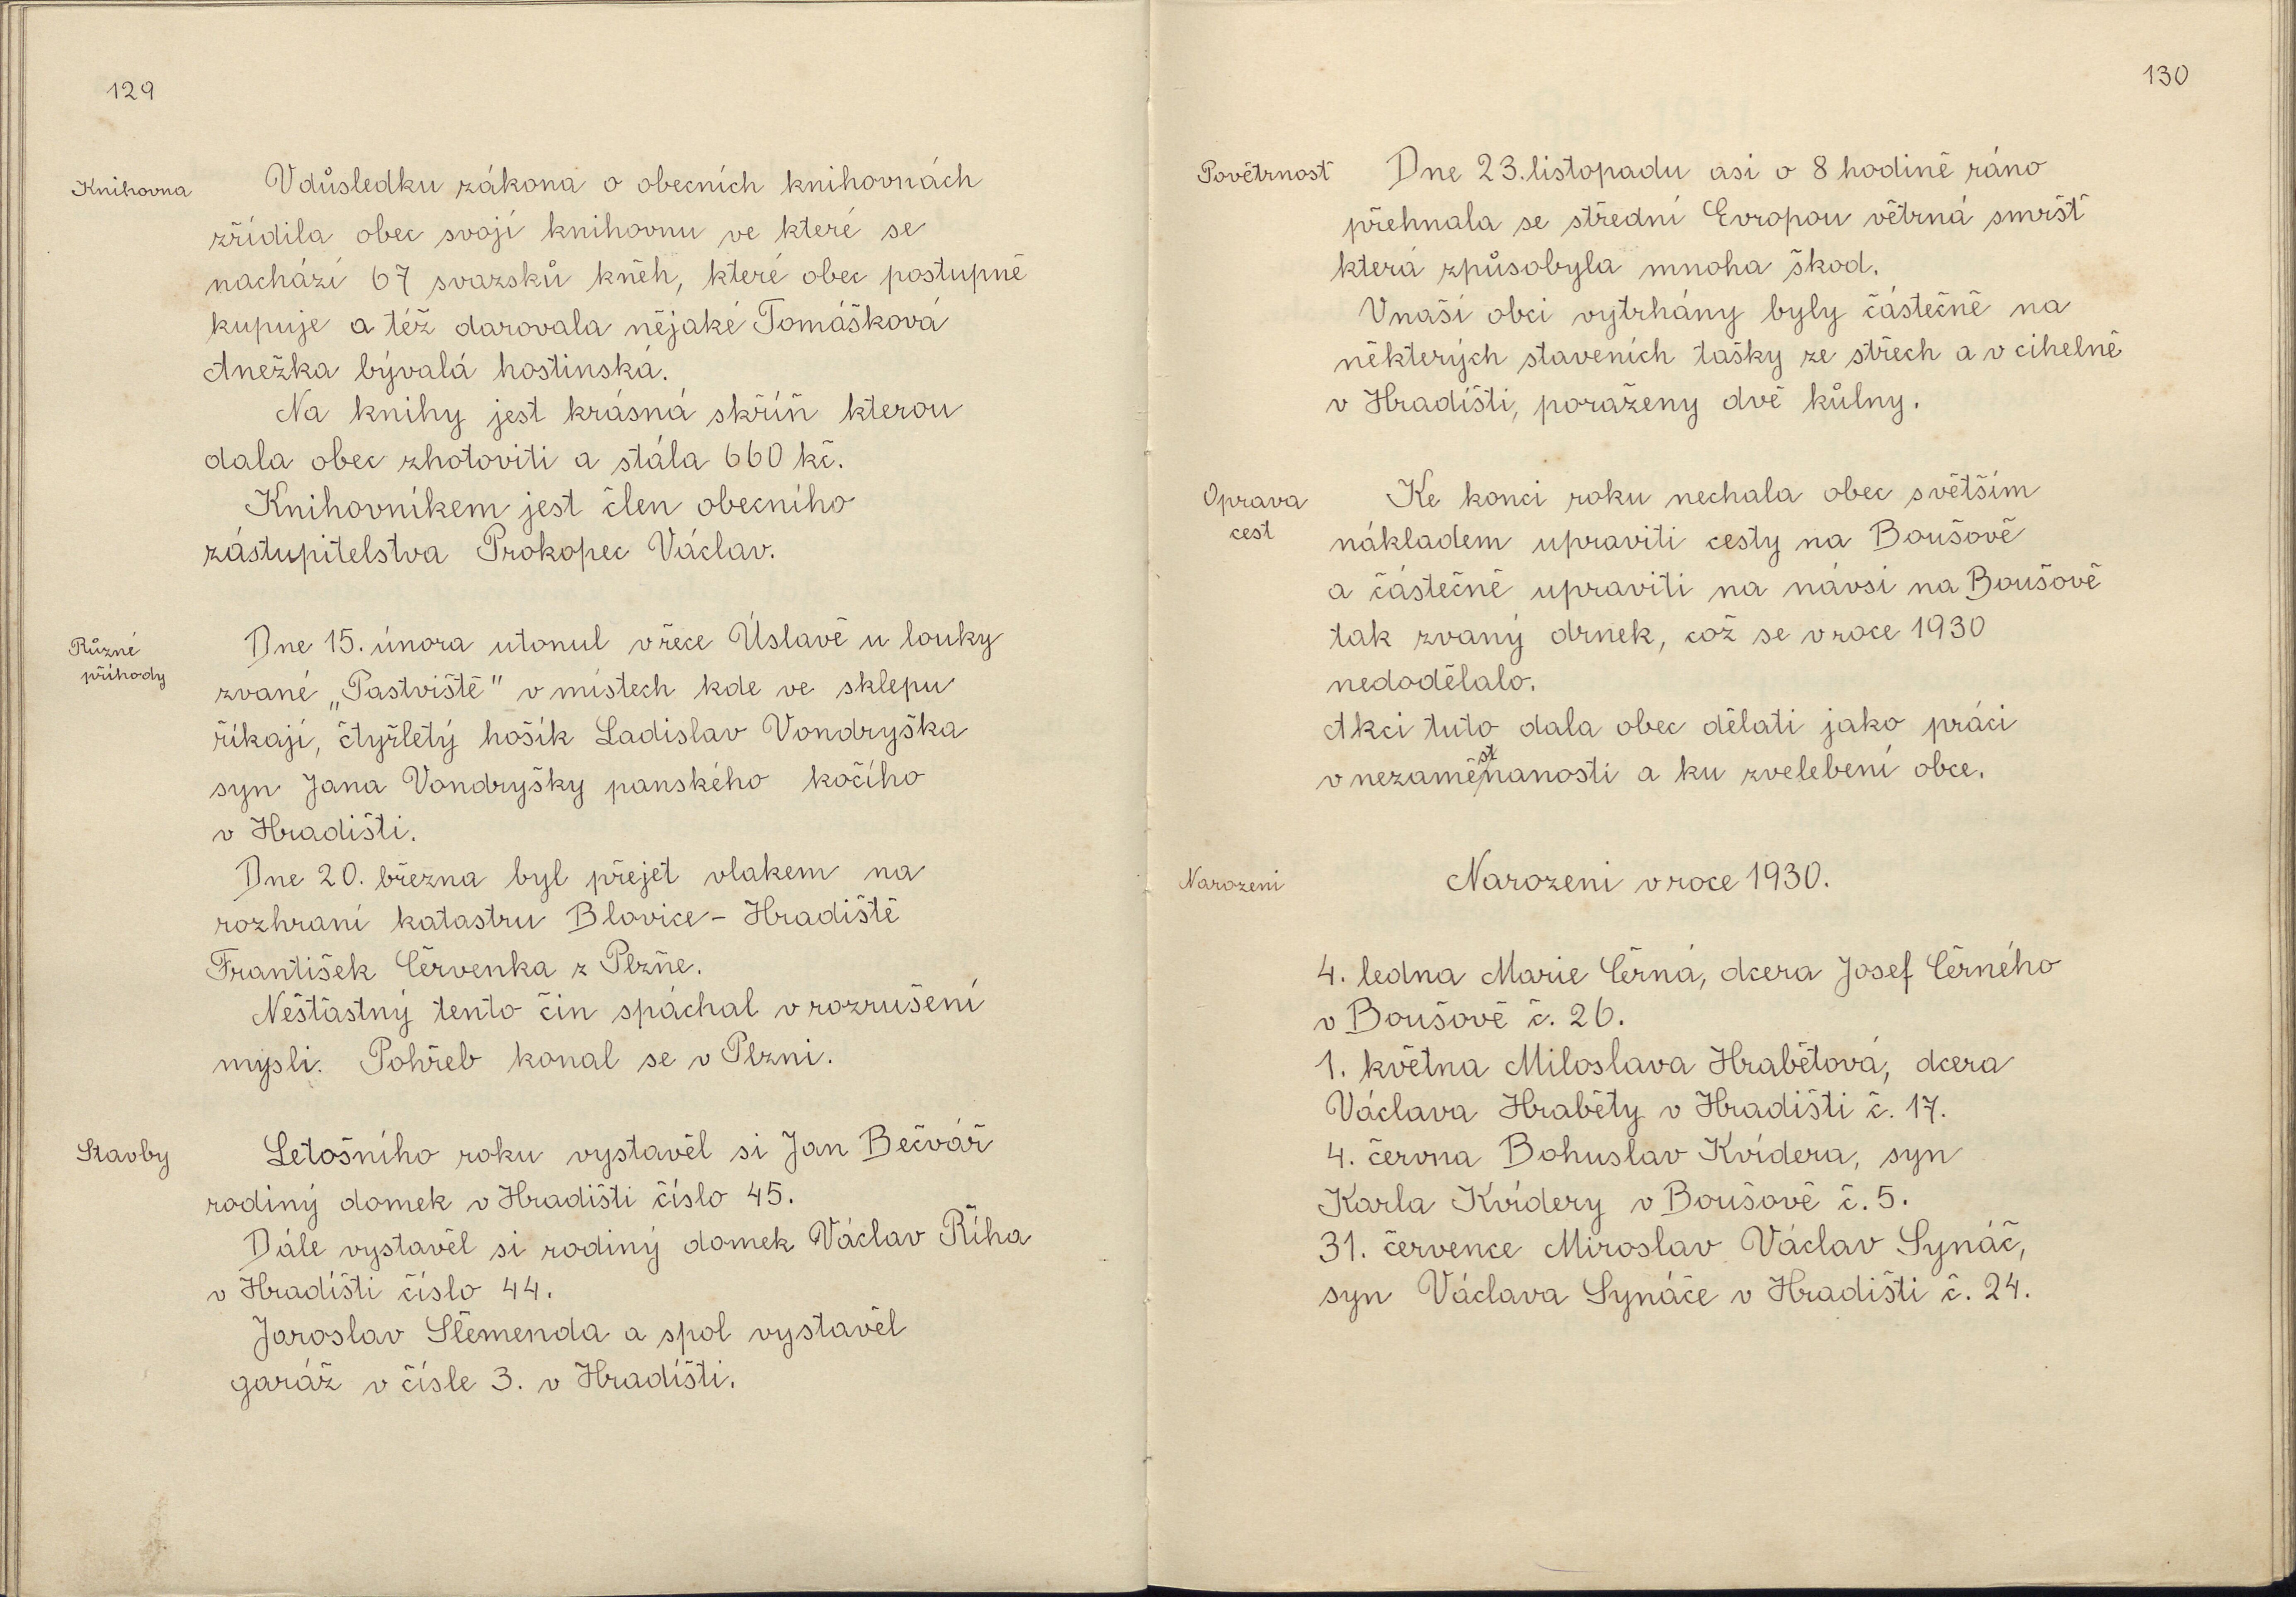 129
Knihovna
Vdůsledku zákona o obecních knihovnách
zřídila obec svojí knihovnu ve které se
nachází 67 svazsků kněh, které obec postupně
kupuje a též darovala nějaké Tomášková
Anežka bývalá hostinská.
Na knihy jest krásná skříň kterou
dala obec zhotoviti a stála 660 kč.
Knihovníkem jest člen obecního
zástupitelstva Prokopec Václav.
Různé
příhody
Dne 15. února utonul vřece Úslavě u louky
zvané „Pastviště" v místech kde ve sklepu
říkají, čtyřletý hošík Ladislav Vondryška
syn Jana Vondryšky panského kočího
v Hradišti.
Dne 20. března byl přejet vlakem na
rozhraní katastru Blovice - Hradiště
František Červenka z Plzně.
Nešťastný tento čin spáchal v rozrušení
mysli. Pohřeb konal se v Plzni.
Stavby
Letošního roku vystavěl si Jan Bečvář
rodiný domek v Hradišti číslo 45.
Dále vystavěl si rodiný domek Václav Říha
v Hradišti číslo 44.
Jaroslav Slemenda a spol vystavěl
garáž v čísle 3. v Hradišti.
130
Povětrnosť
Dne 23. listopadu asi o 8 hodině ráno
přehnala se střední Evropou větrná smršť
která způsobyla mnoha škod.
Vnaší obci vytrhány byly částečně na
některých staveních tašky ze střech a v cihelně
v Hradišti, poraženy dvě kůlny.
Oprava
cest
Ke konci roku nechala obec světším
nákladem upraviti cesty na Boušově
a částečně upraviti na návsi na Boušově
tak zvaný drnek, což se vroce 1930
nedodělalo.
Akci tuto dala obec dělati jako práci
v nezaměstnanosti a ku zvelebení obce.
Narozeni
Narozeni vroce 1930.
4. ledna Marie Černá, dcera Josef Černého
v Boušově č. 26.
1. května Miloslava Hrabětová, dcera
Václava Hraběty v Hradišti č. 17.
4. června Bohuslav Kvídera, syn
Karla Kvídery v Boušově č. 5.
31. července Miroslav Václav Synáč,
syn Václava Synáče v Hradišti č. 24.